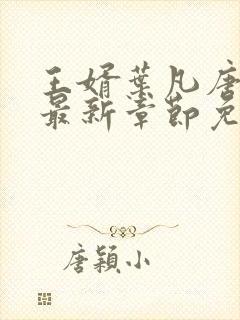 王婿叶凡唐
最新章節免
唐穎小